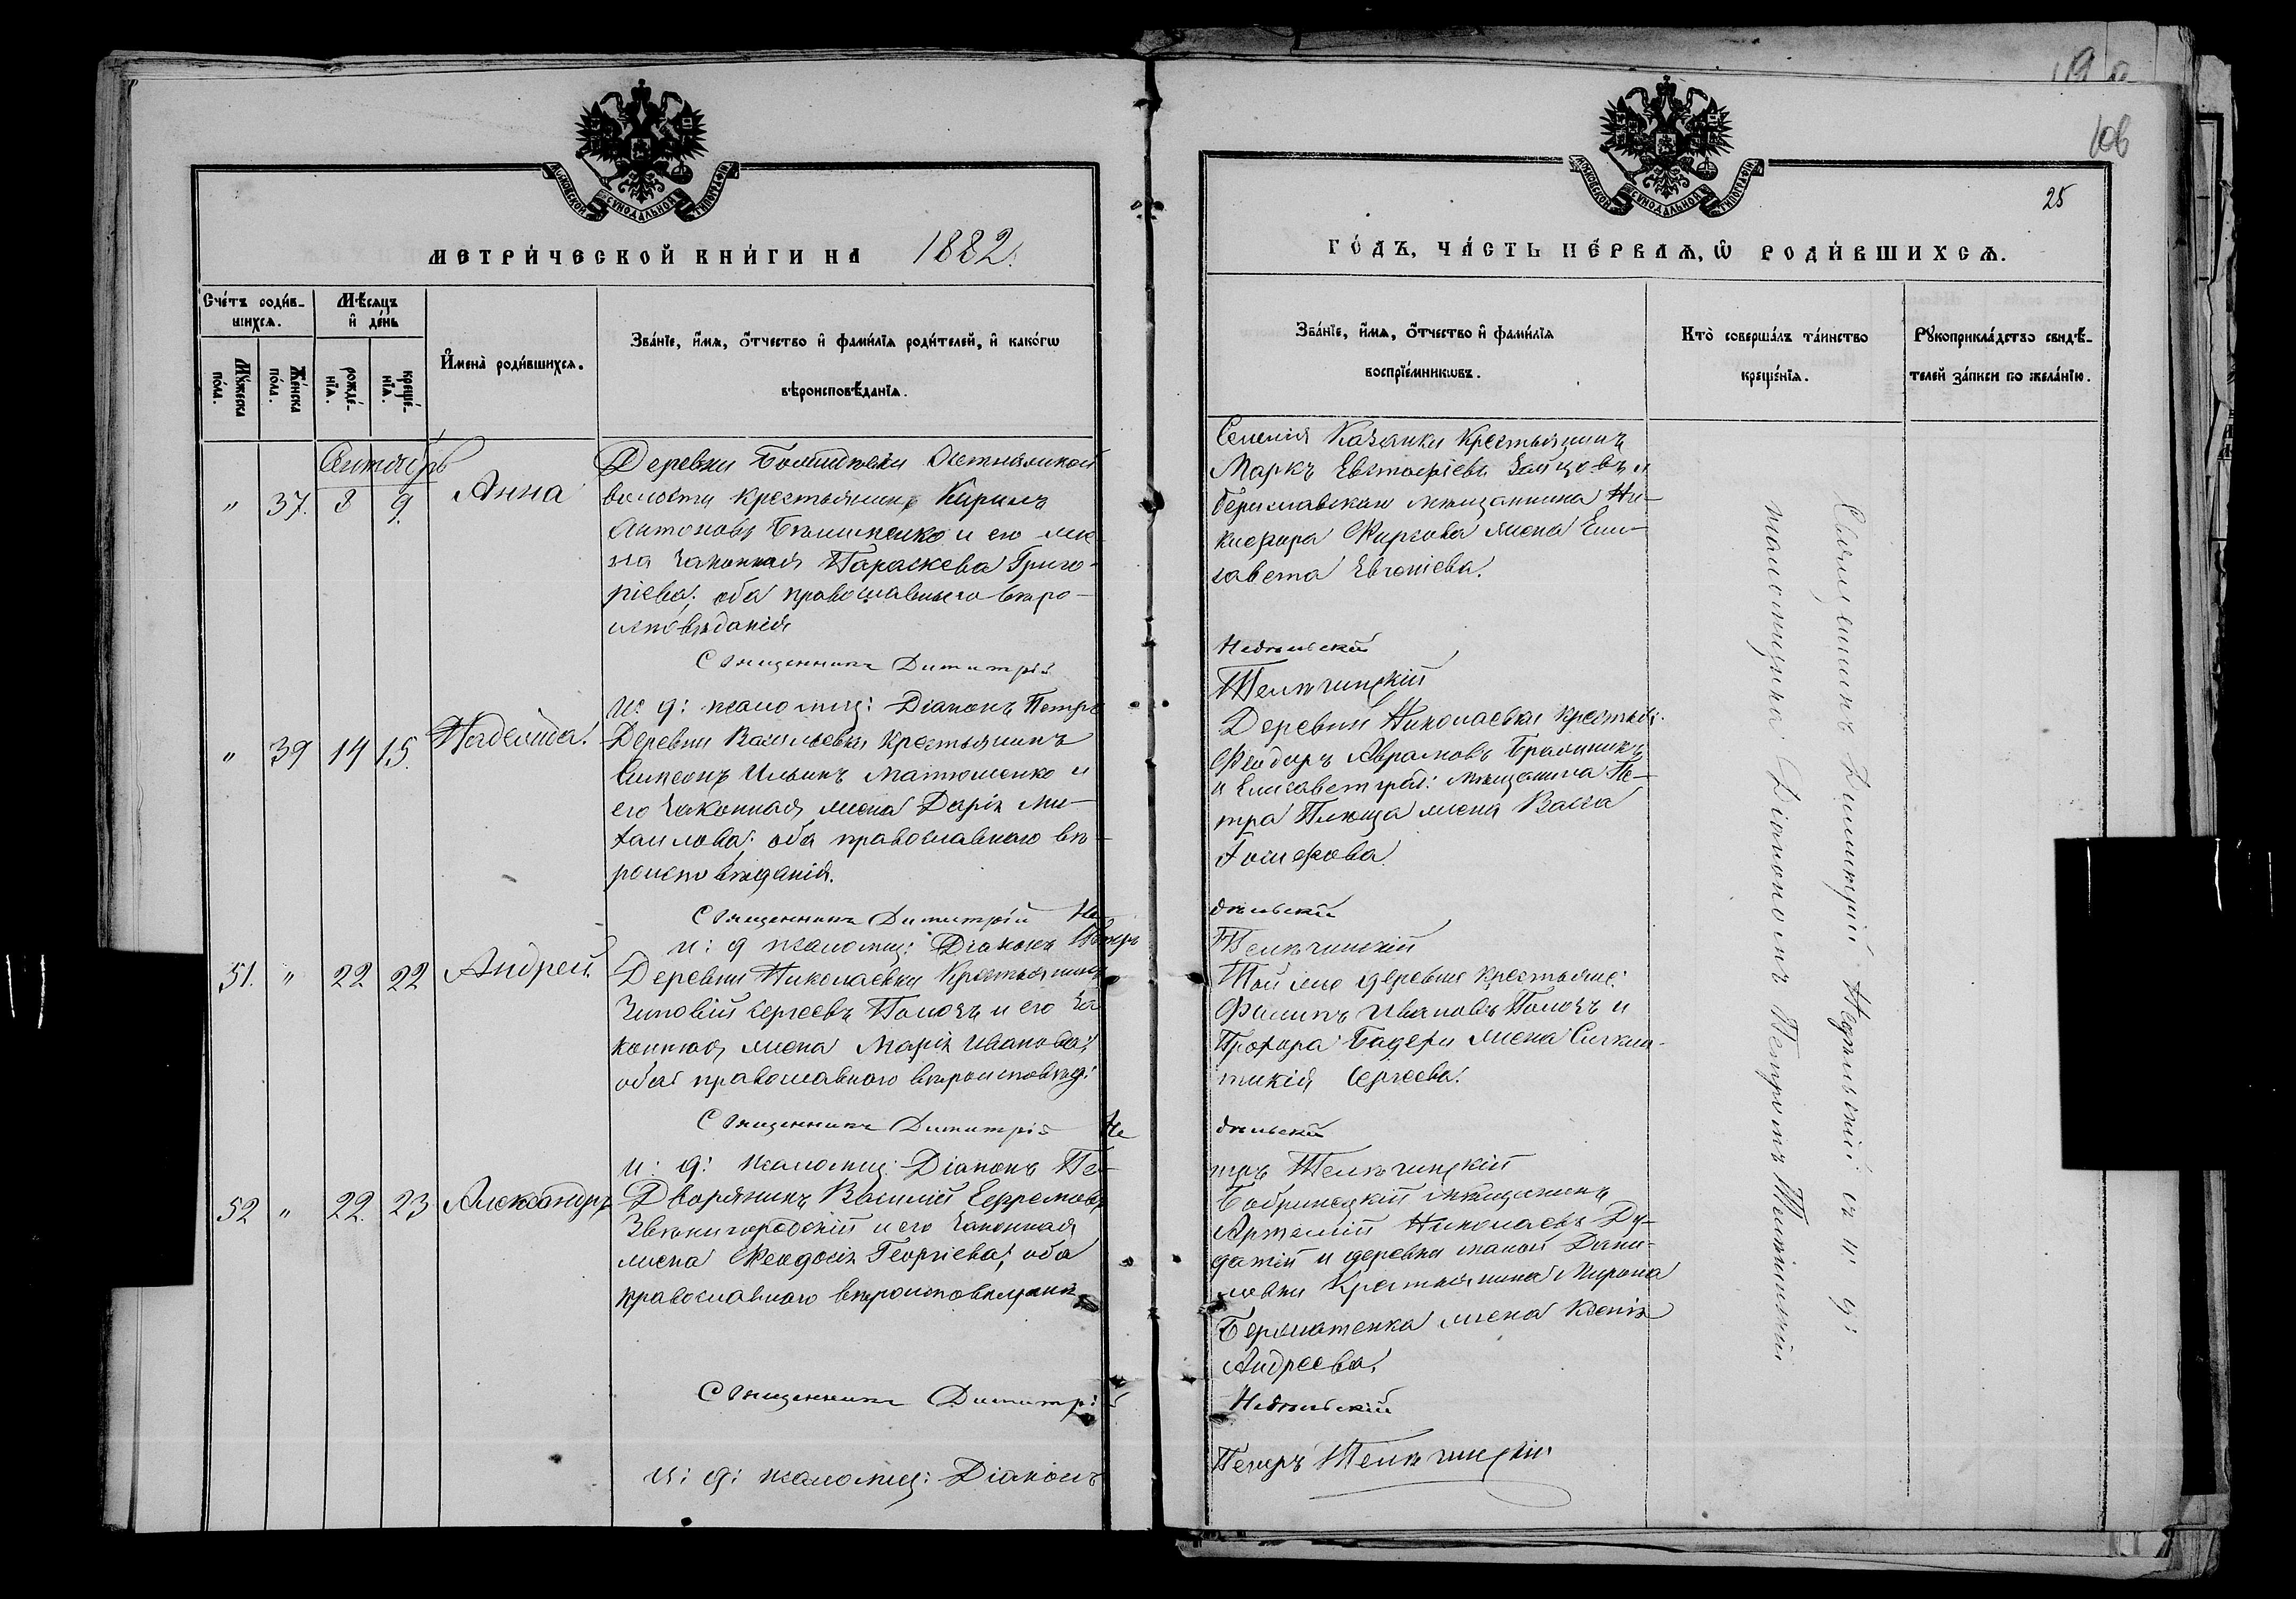 106
25
МОСКОВСКОЙ СѴНОДАЛЬНОЙ ТИПОГРАФІИ
МЕТРИ́ЧЕСКОЙ КНИ́ГИ НА 1882.
Сче́тъ роди́в-
шихсѧ.
Мѣ́сѧцъ
и҆ де́нь
Мꙋ́жеска
по́ла.
Же́нска
по́ла.
рожде́-
нїѧ.
креще́-
нїѧ.
И҆мена̀ роди́вшихсѧ.
Зва́нїе, и҆́мѧ, ѻ҆́тчество и҆ фами́лїѧ роди́телей, и҆ како́гѡ
вѣроисповѣ́данїѧ.
Октябрь
" 37. 8 9. Анна
Деревни Остняжской
волости крестьянинъ Кирилъ
Антоновъ и его же-
на законная Параскева Григо-
ріева; оба православнаго вѣро-
исповѣданія
Священникъ Димитрій
и: д: псаломщ: Діаконъ Петръ
" 39 14 15. Надежда.
Деревни Васильевки крестьянинъ
Симеонъ Ильинъ Матюшенко и
его законная жена Дарія Ми-
хаилова: оба православнаго вѣ-
роисповѣданія.
Священникъ Димитрій Не
и: д псаломщ: Діаконъ Петръ
51. " 22 22 Андрей.
Деревни Николаевки Крестьянинъ
Зиновій Сергеевъ Помазъ и его за
конная жена Марія Иванова;
оба православнаго вѣроисповѣд:
Священникъ Димитрій Не
и: д: псаломщ: Діаконъ Пе-
52 " 22. 23 Александръ
Дворянинъ Василій Ефремовъ
Звенигородскій и его законная
жена Феодосія Георгіева; оба
православнаго вѣроисповѣданія
Священникъ Димитрій
и: д: псаломщ: Діаконъ
МОСКОВСКОЙ СѴНОДАЛЬНОЙ ТИПОГРАФІИ
ГО́ДЪ, ЧА́СТЬ ПЕ́РВАѦ, Ѡ҆ РОДИ́ВШИХСѦ.
Зва́нїе, и҆́мѧ, ѻ҆́тчество и҆ фами́лїѧ
воспрїе́мникѡвъ.
Кто̀ соверша́лъ та́инство
креще́нїѧ.
Рꙋкоприкла́дство свидѣ́-
телей за́писи по жела́нїю.
Селенія Казанки Крестьянинъ
Маркъ Евстафіевъ Зайцовъ и
бериславскаго мѣщанина Ни-
кифора Фирсова жена Ели-
завета Евгеніева.
Недѣльскій
Телѣчинскій
Деревни Николаевки крестья:
Феодоръ Аврамовъ Браминикъ
и Елисаветград: мѣщанина Пе-
тра Плюща жена Васса
Іосифова.
дѣльскій
Телѣчинскій
Той же деревни крестьяне:
Филипъ Ивановъ Помазъ и
Прохора Бадери жена Синкли-
тикія Сергеева.
дѣльскій
тръ Телѣчинскій
Бобринецкій мѣщанинъ
Артемій Николаевъ Ду-
и деревни Дани-
ловки Крестьянина Мирона
жена Ксенія
Андреева.
Недѣльскій
Петръ Телѣчинскій
Священникъ Димитрій Недѣльскій съ и: д:
псаломщика Діакономъ Петромъ Телѣчинскимъ